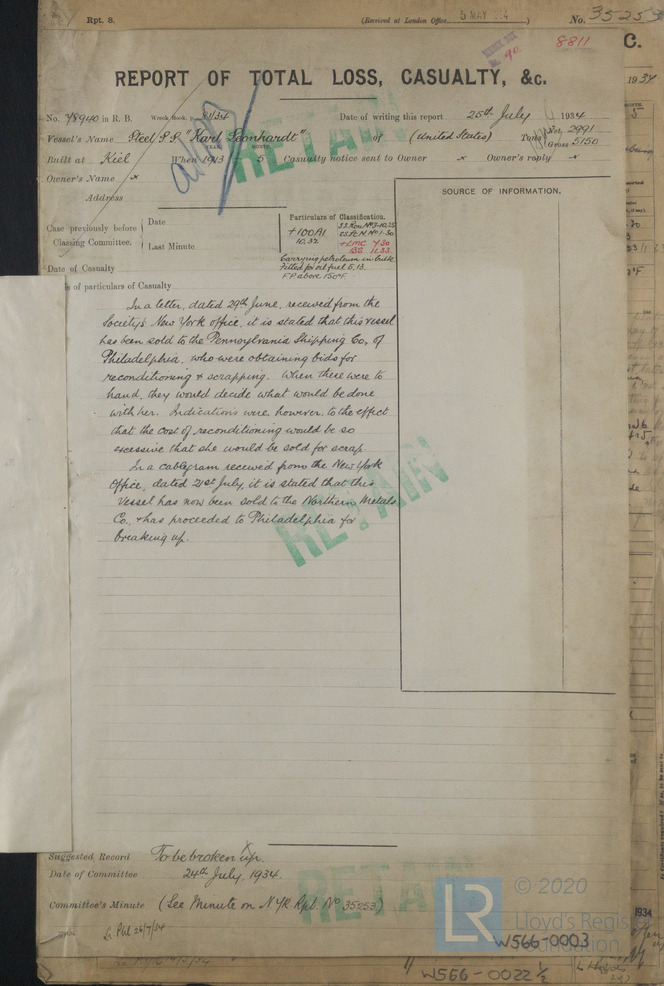 Rpt. 8.
(Received at London Office
5 MAY
)
No. 35253
8811
C.
1934
REPORT OF TOTAL LOSS, CASUALTY, &c.
No. 78940 in R. B.
Wreck Book, p. 81/34
Date of writing this report 25th July 1934
Vessel's Name Steel S.S. "Karl Leonhardt" of (United States) Tons Net 2991
Gross 5150
Built at Kiel When 1913 5 Casualty notice sent to Owner × Owner's reply ×
YEAR. MONTH.
Owner's Name ×
Address
SOURCE OF INFORMATION.
RETAIN
Case previously before
Classing Committee.
Date
Last Minute
Particulars of Classification.
+100A1
10,32
+LMC 4.30
BS 11.33
Carrying petroleum in bulk.
Fitted for oil fuel 5,13.
F.P. above 150°F.
Date of Casualty
s of particulars of Casualty
In a letter, dated 29th June, received from the
Society's New York office, it is stated that this vessel
has been sold to the Pennsylvania Shipping Co, of
Philadelphia, who were obtaining bids for
reconditioning & scrapping. When these were to
hand, they would decide what would be done
with her. Indications were, however, to the effect
that the cost of reconditioning would be so
excessive that she would be sold for scrap.
In a cablegram received from the New York
Office, dated 21st July, it is stated that this
vessel has now been sold to the Northern Metals
Co., & has proceeded to Philadelphia for
breaking up.
RETAIN
Suggested Record To be broken up.
Date of Committee 24th July, 1934.
Committee's Minute (See Minute on NYK Rpt. No 35253)
RETAIN
LR
© 2020
Lloyd's Register
Foundation
W566-0003
W566-0022 ½
1934